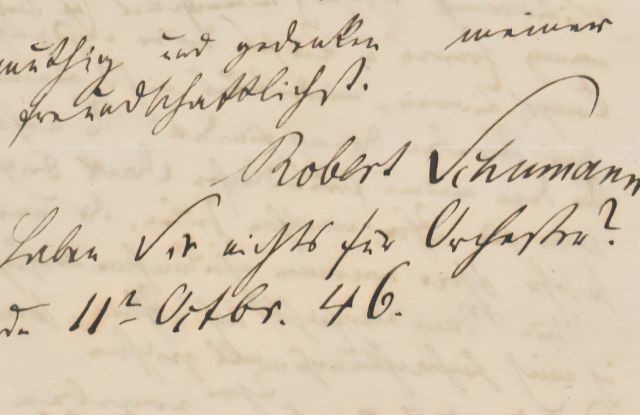 muthig und gedenken meiner
freundschaftlichst.
Robert Schumann
Haben Sie nichts für Orchester?
11t Octbr. 46.